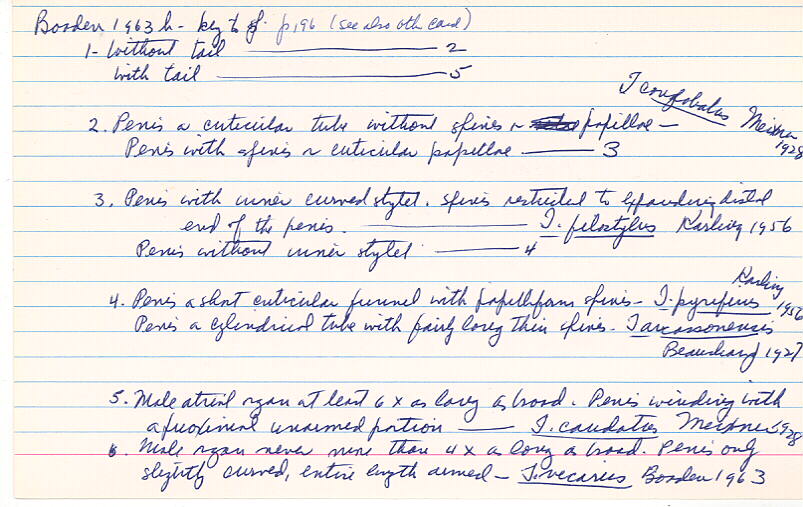 Boaden 1963 b - key to sp. p196 (see also oth card)
1- Without tail ——— 2
With tail ——— 5
2. Penis a cuticular tube without spines or papillae — I conglobatus Meixner 1928
Penis with spines or cuticular papillae ——— 3
3. Penis with inner curved stylet. spines restricted to expanding distal
end of the penis. ——— I. filostylus Karling 1956
Penis without inner stylet ——— 4
4. Penis a short cuticular funnel with papilliform spines - I. pyriferus Karling 1956
Penis a cylindrical tube with fairly long thin spines. I arcassonensis
Beauchamp 1927
5. Male atrial organ at least 6 x as long as broad. Penis winding with
a proximal unarmed portion —— I. caudatus Meixner 1928
6. Male organ never more than 4 x as long as broad. Penis only
slightly curved, entire length armed - I. vecarius Boaden 1963